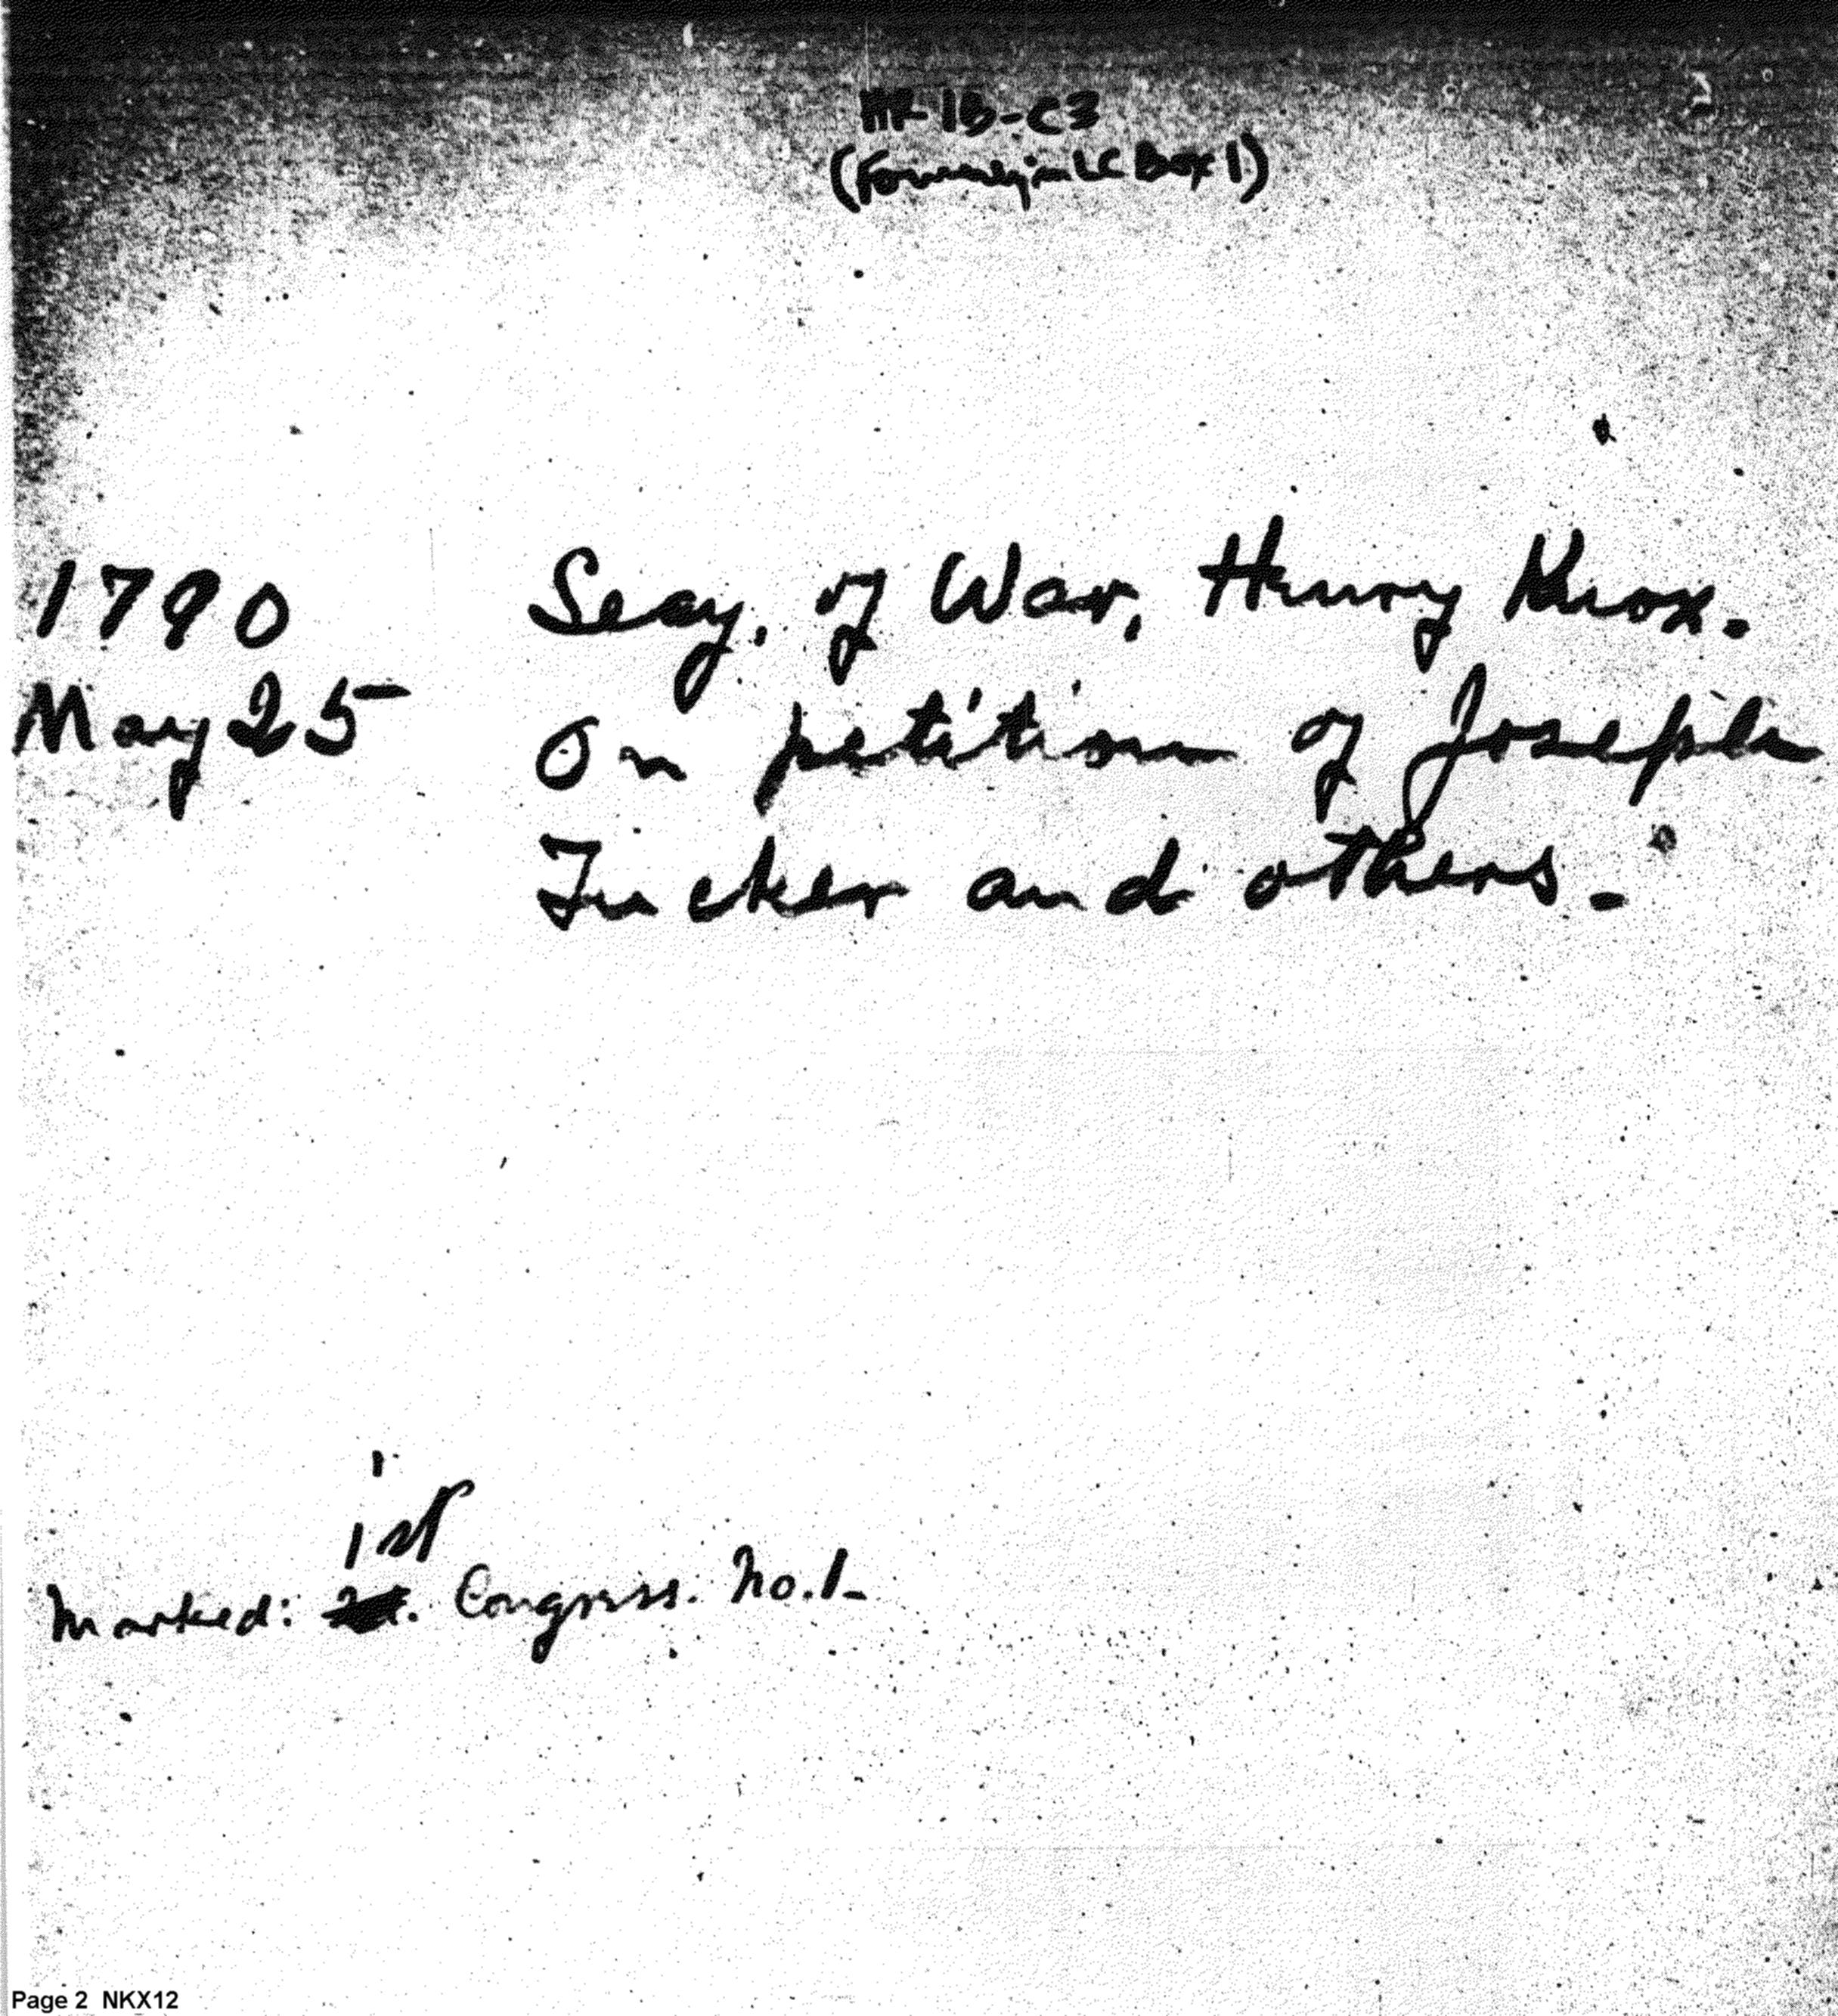 HR 1B-C3
(Formerly in LC Box 1)
1790
May 25
Secy. of War, Henry Knox.
On petition of Joseph
Tucker and others.
1st
Marked: Congress. No. 1
Page 2 NKX12